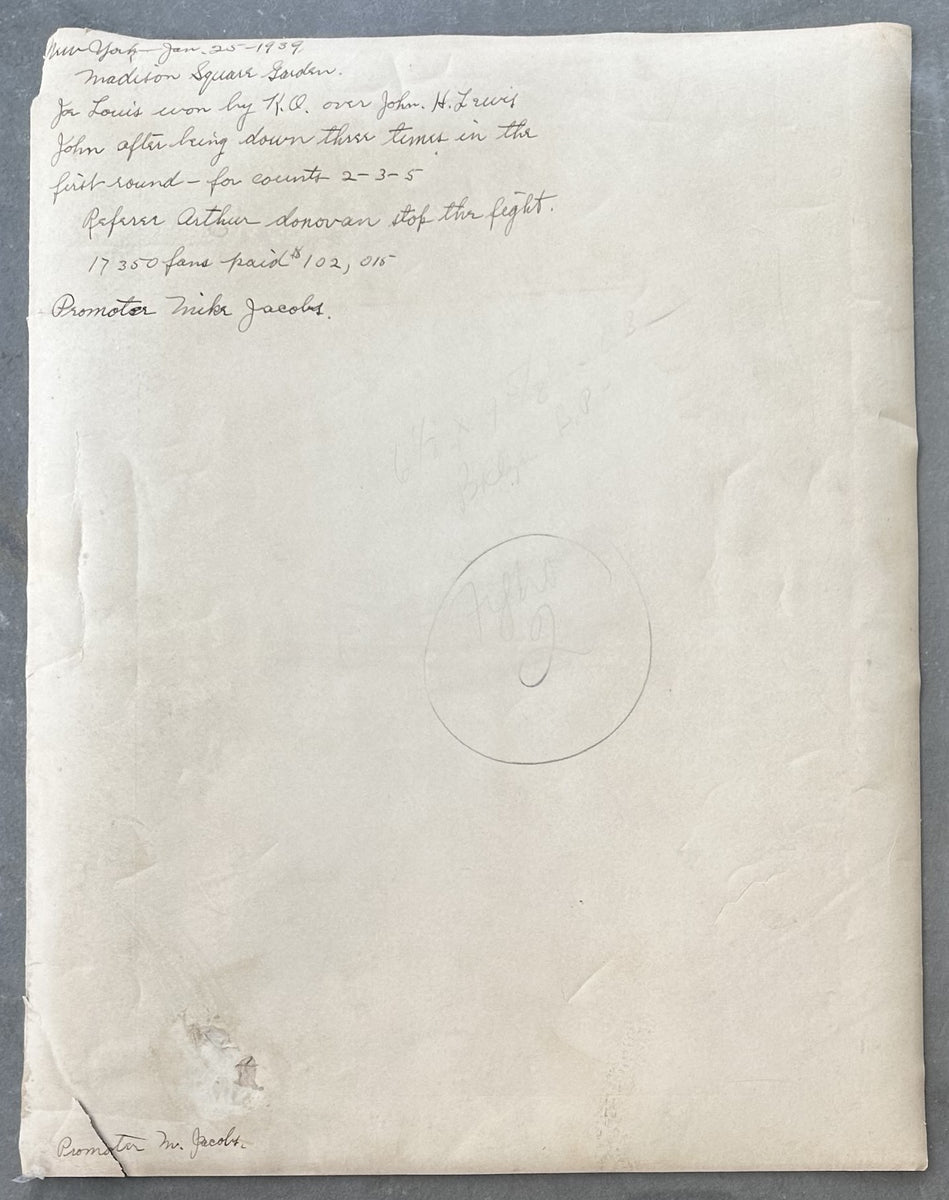 New York - Jan. 25 - 1939
Madison Square Garden.
Joe Louis won by K.O. over John. H. Lewis
John after being down three times in the
first round - for counts 2-3-5
Referer Arthur donovan stop the fight.
17350 fans paid $102,015
Promoter Mike Jacobs.
6 1/2 x
2
Promoter M. Jacobs.